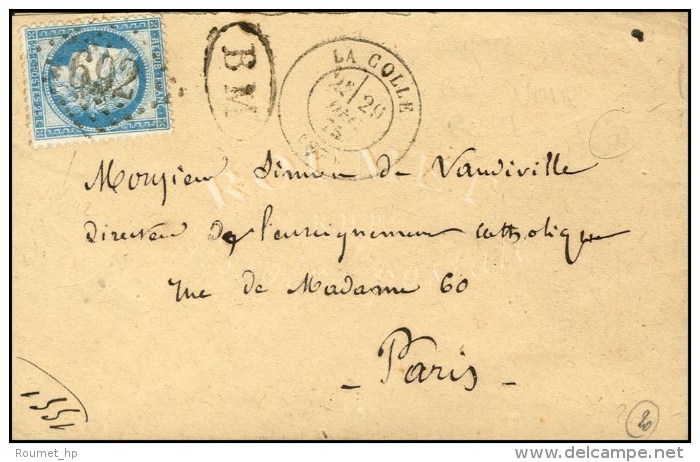 692
REPUB FRANC
POSTES
B M
LA COLLE
2E 26
DEC
75
Monsieur Simon de Vandiville
directeur de l'enseignement catholique
rue de Madame 60
- Paris -
1551
20
ROUMET
Roumet_hp
www.delcampe.net